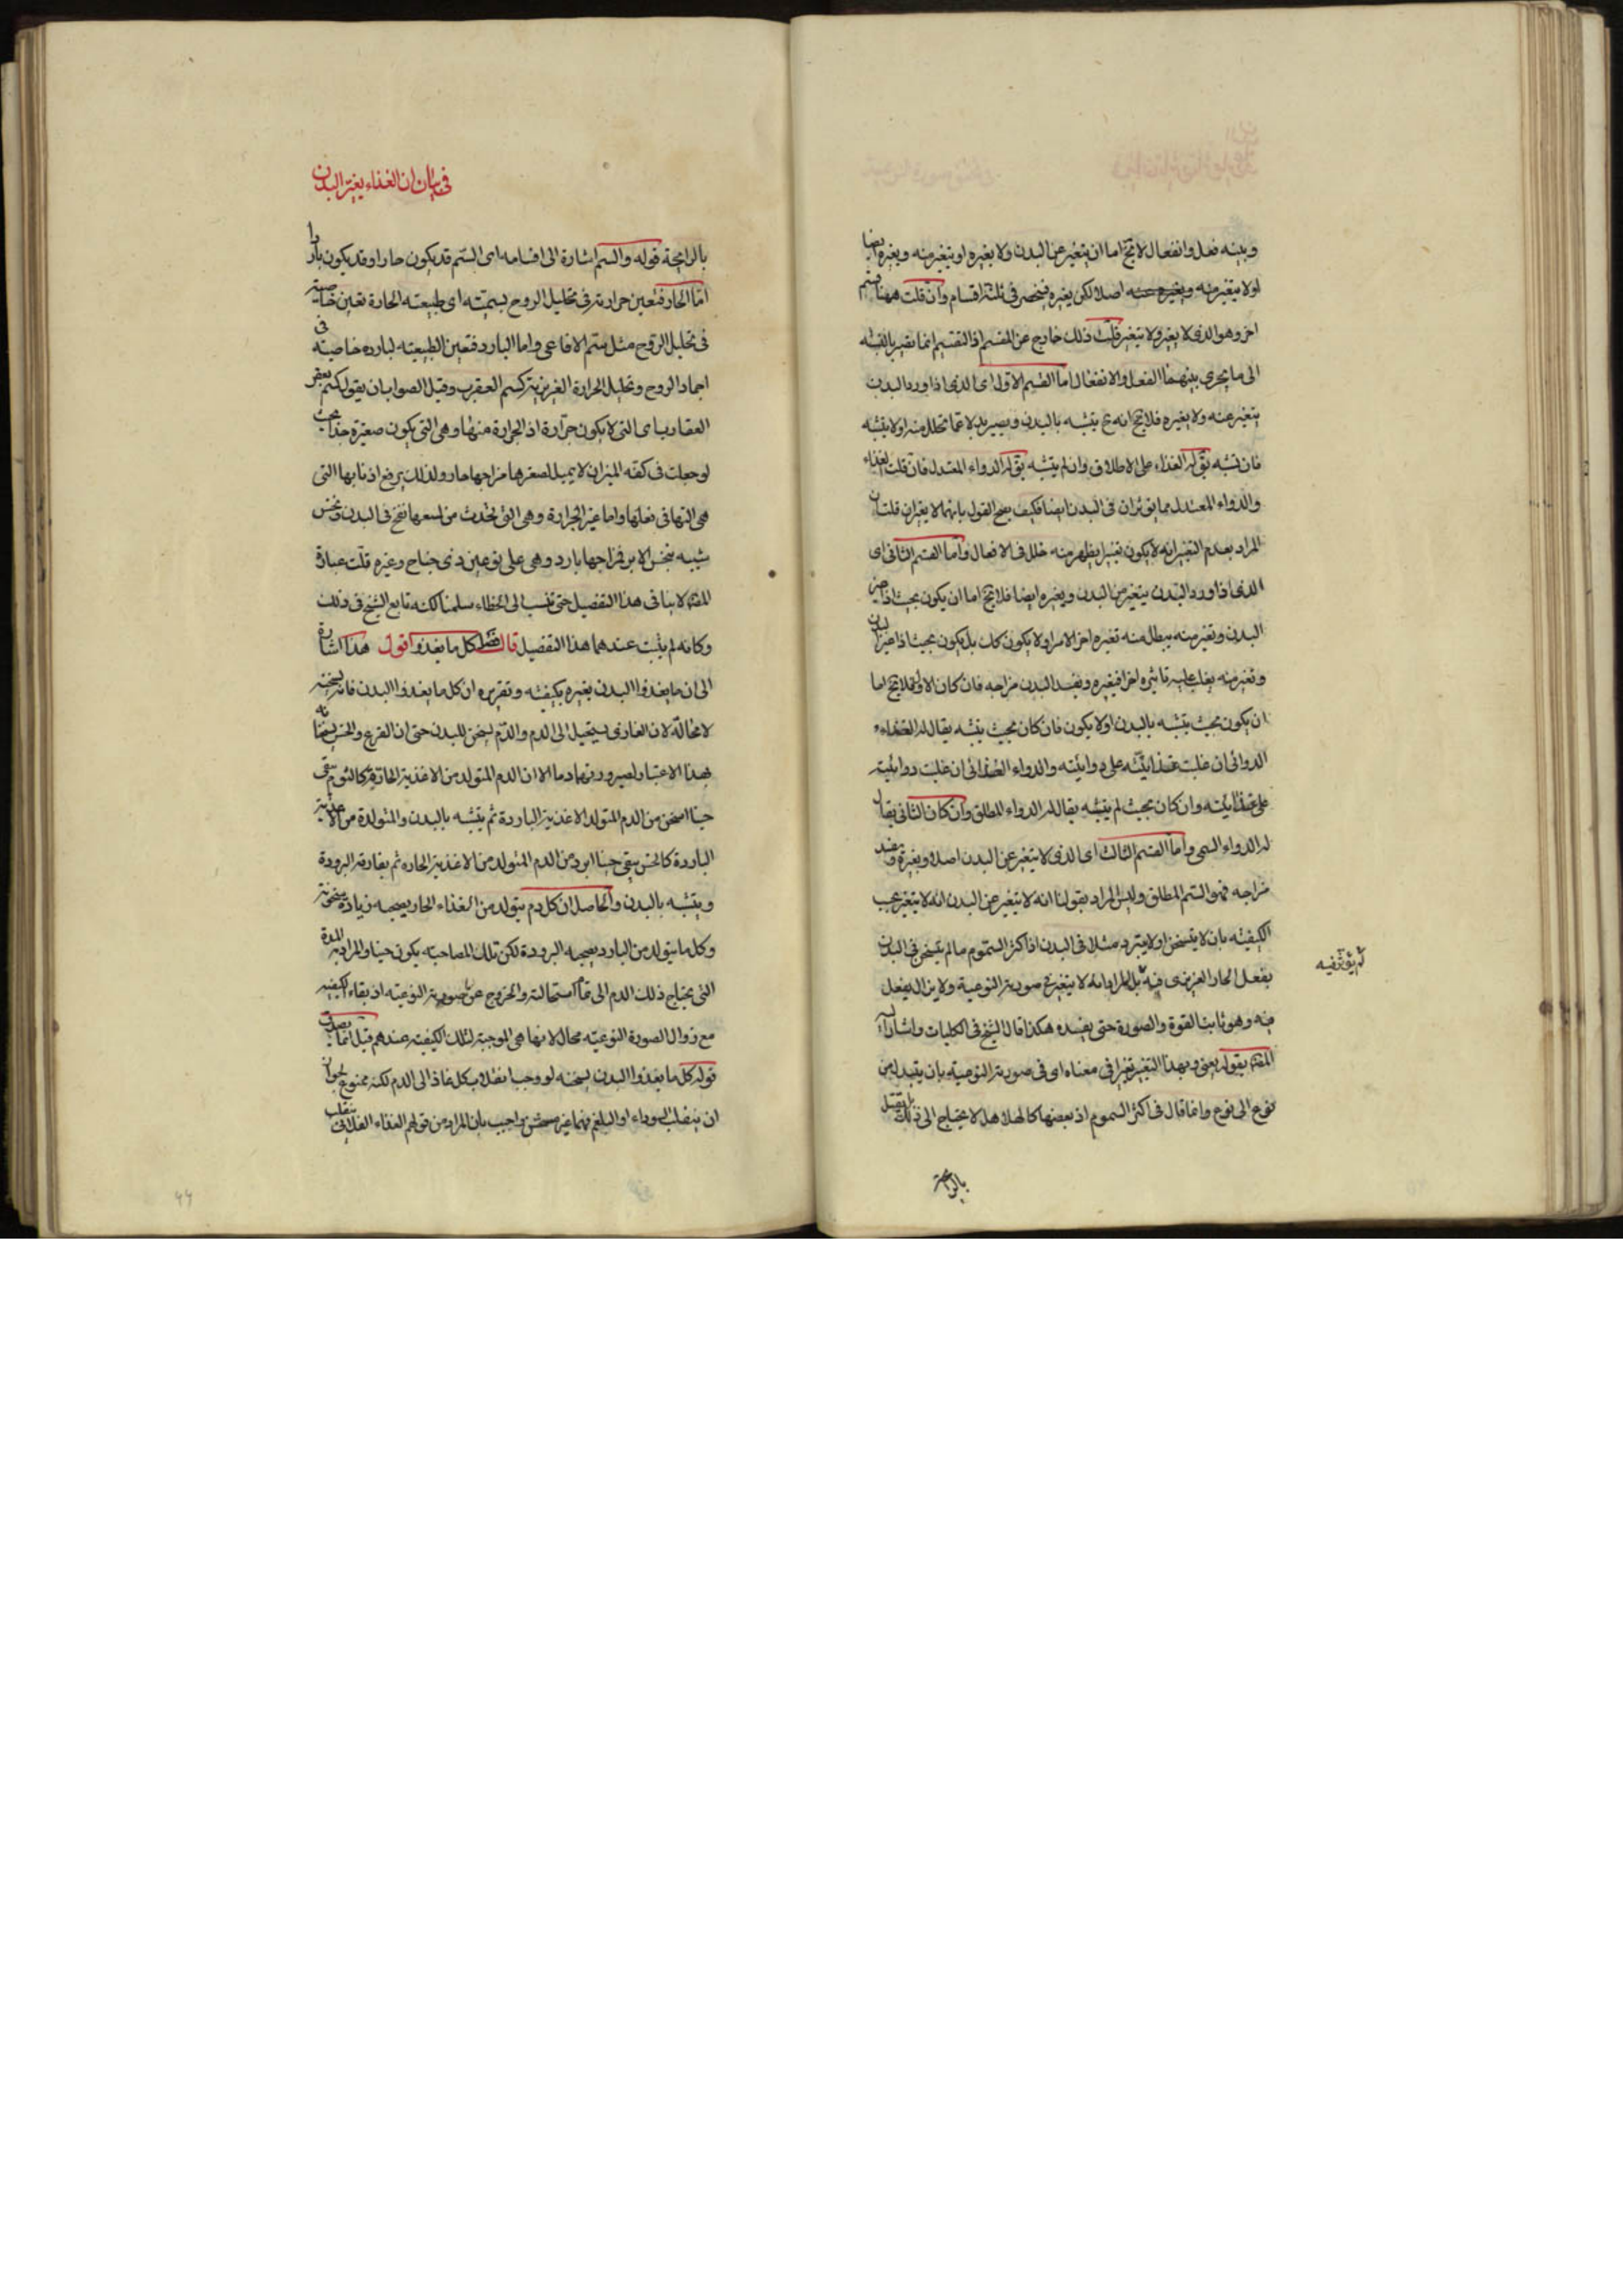 وبينه فعل وانفعال لا يخ اما ان يتغير عن البدن ولا يغيره او يتغير منه ويغيره ايضا
او لا يتغير منه اصلا لكن يغيره فينحصر في ثلثة اقسام وان قلت ههنا قسم
اخر وهو الذي لا يغير ولا يتغير قلت ذلك خارج عن المقسم اذ التقسيم انما يصير بالنسبة
الى ما يجري بينهما الفعل والانفعال اما القسم الاول اي الذي اذا ورد البدن
يتغير عنه ولا يغيره فلا يخ انه يتشبه بالبدن ويصير بدلا عما تحلل منه او لا يتشبه
فان تشبه يق له الغذاء على الاطلاق وان لم يتشبه يق له الدواء المعتدل فان قلت الغذاء
والدواء المعتدل مما يؤثران في البدن ايضا فكيف يصح القول بانهما لا يغيران قلت ان
المراد بعدم التغير انه لا يكون تغيرا يظهر منه خلل في الافعال واما القسم الثاني اي
الذي اذا ورد البدن يتغير من البدن ويغيره ايضا فلا يخ اما ان يكون بحيث اذا غير
البدن وتغير منه يبطل منه تغيره اخر الامر او لا يكون كك بل يكون بحيث اذا غير البدن
وتغير منه يغلب عليه تاثيره اخرا فيغيره ويفسد البدن مزاجه فان كان الاول فلا يخ اما
ان يكون بحيث يتشبه بالبدن او لا يكون فان كان بحيث يتشبه يقال له الغذاء
الدوائي ان غلبت غذائيته على دوائيته والدواء الغذائي ان غلبت دوائيته
على غذائيته وان كان بحيث لم يتشبه يقال له الدواء المطلق وان كان الثاني يقال
له الدواء السمي واما القسم الثالث اي الذي لا يتغير عن البدن اصلا ويغيره ويفسد
مزاجه فهو السم المطلق وليس المراد بقولنا انه لا يتغير عن البدن انه لا يتغير بحسب
الكيفية بان لا يتسخن او لا يتبرد مثلا في البدن اذ اكثر السموم ما لم يتسخن في البدن
بفعل الحار الغريزي فيه بل المراد انه لا يتغير في صورته النوعية ولا يزال يفعل
لم يؤثر فيه
فيه وهو ثابت القوة والصورة حتى يفسده هكذا قال الشيخ في الكليات واشار اليه
المصنف بقوله يعني ويهذا التغير تغيرا في معناه اي في صورته النوعية بان يتبدل من
نوع الى نوع وانما قال في اكثر السموم اذ بعضها كالهلاهل لا يحتاج الى ذلك بل يقتل
بالرايحة
في بيان ان الغذاء يغير البدن
بالرايحة قوله والسم اشارة الى اقسامه اي السم قد يكون حارا وقد يكون باردا
اما الحار فتعين حرارته في تحليل الروح بسميته اي طبيعته الحارة تعين خاصيته
في تحليل الروح مثل سم الافاعي واما البارد فتعين الطبيعة الباردة خاصيته في
اجماد الروح وتحليل الحرارة الغريزية كسم العقرب وقيل الصواب ان يقول كسم بعض
العقارب اي التي لا يكون جرارة اذ الجرارة منها وهي التي يكون صغيرة جدا بحيث
لو جعلت في كفه الميزان لا يميل لصغرها مزاجها حار ولذلك يرفع اذنابها التي
هي التها في فعلها واما غير الجرارة وهي التي تحدث من لسعها نفخ في البدن ونخس
شبيه بنخس الابر فمزاجها بارد وهي على نوعين ذي جناح وغيره قلت عبارة
المصنف لا ينافي هذا التفصيل حتى تنسب الى الخطاء سلمنا لكنه تابع الشيخ في ذلك
وكانه لم يثبت عندهما هذا التفصيل قال كل ما يغذوا اقول هذا اشارة
الى ان ما يغذوا البدن يغيره بكيفيته وتقريره ان كل ما يغذوا البدن فانه يسخنه
لا محالة لان الغاذي يستحيل الى الدم والدم يسخن للبدن حتى ان القرع والخس يسخنانه
بهذا الاعتبار لصيرورتهما دما الا ان الدم المتولد من الاغذية الحارة كالثوم يبقى
حينا اسخن من الدم المتولد الاغذية الباردة ثم يتشبه بالبدن والمتولدة من الاغذية
الباردة كالخس يبقى حينا ابرد من الدم المتولد من الاغذية الحاره ثم يفارقه البرودة
ويتشبه بالبدن والحاصل ان كل دم يتولد من الغذاء الحار يصحبه زيادة سخونة
وكل ما يتولد من البارد يصحبه البرودة لكن تلك المصاحبة يكون حينا والمراد به المدة
التي يحتاج ذلك الدم الى تمام استحالته والخروج عن صورته النوعيه اذ بقاء الكيفيه
مع زوال الصورة النوعيه محال لانها هي الموجبة لتلك الكيفية عندهم قيل انما يصدق
قوله كل ما يغذوا البدن يسخنه لو وجب انقلاب كل غاذ الى الدم لكنه ممنوع لجواز
ان ينقلب السوداء او البلغم فهما غير مسخنين واجيب بان المراد من قولهم الغذاء الفلاني ينقلب